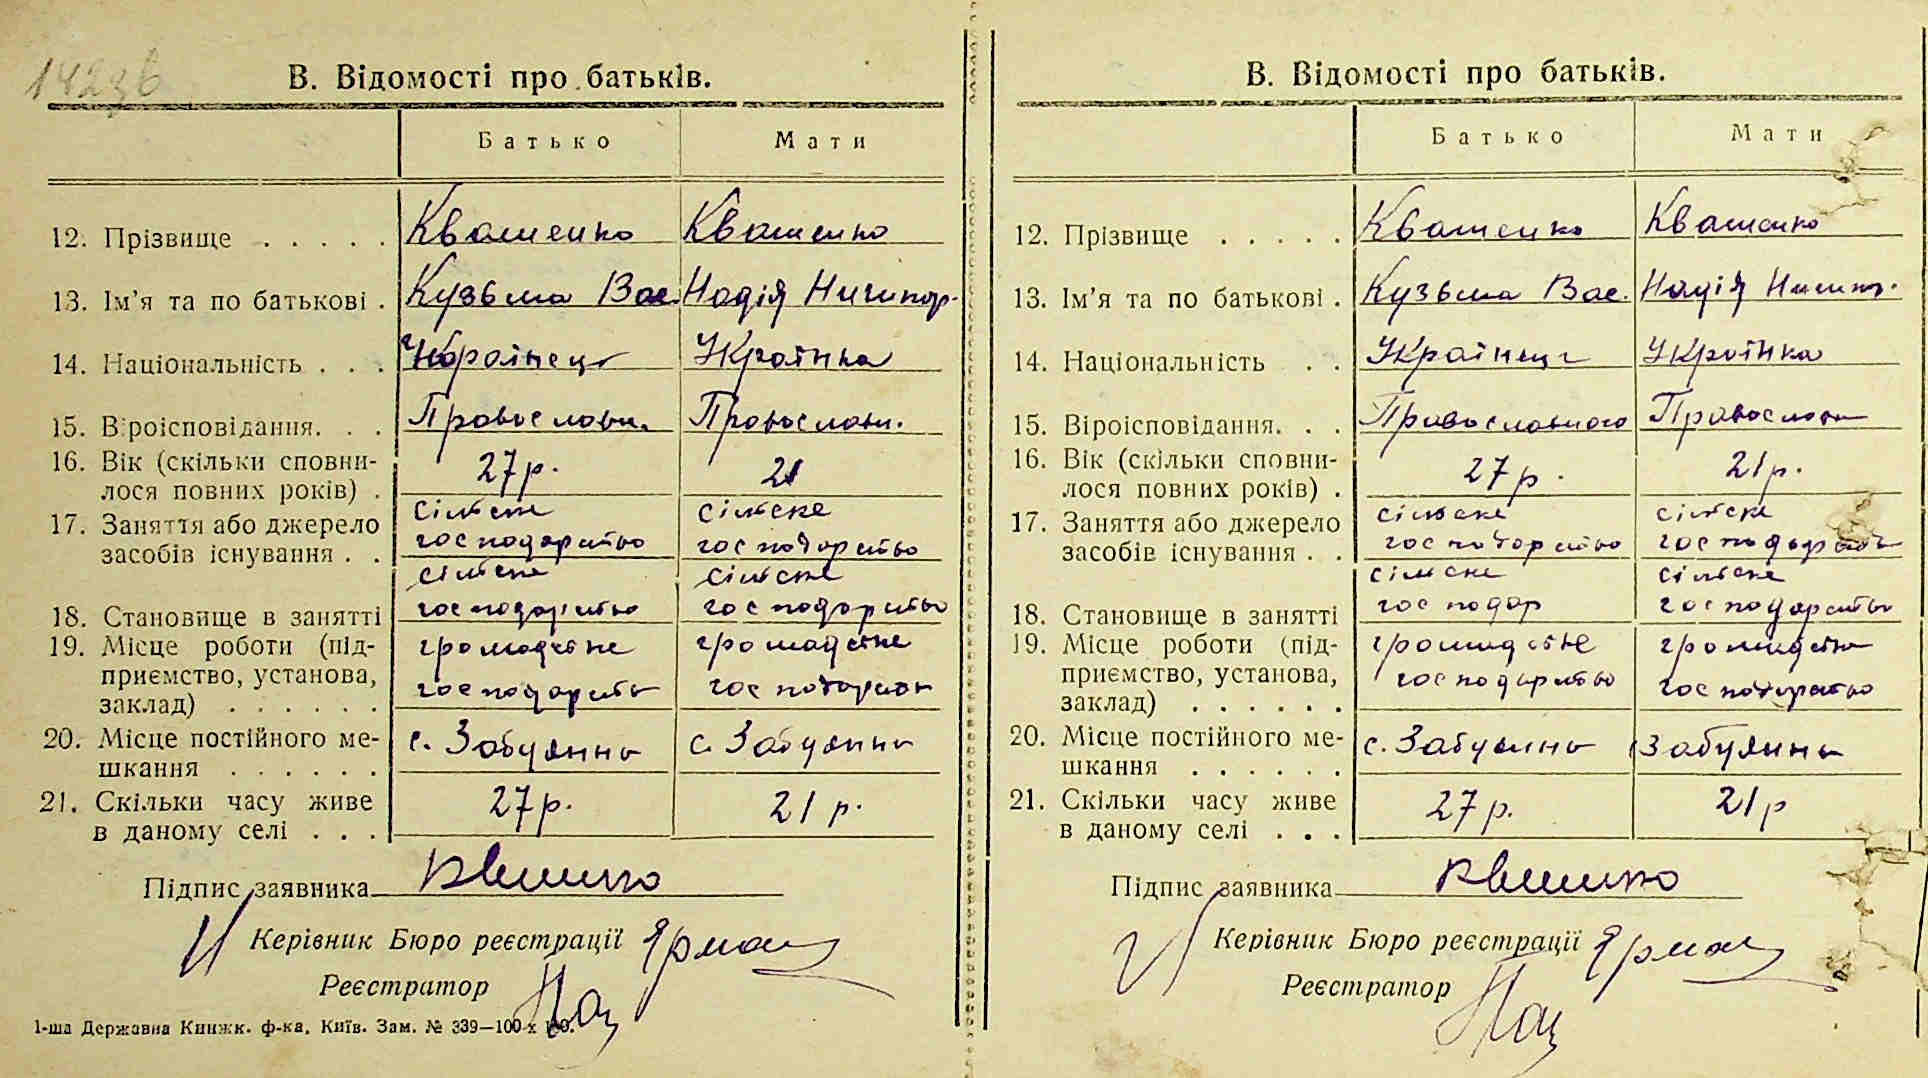 142зв
В. Відомості про батьків.
Батько Мати
12. Прізвище . . . . . Квашенко Квашенко
13. Ім’я та по батькові . Кузьма Вас. Надія Ничипор.
14. Національність . . . Українець Українка
15. Віроісповідання. . . Православн. Православн.
16. Вік (скільки сповни- 27р. 21
лося повних років) .
17. Заняття або джерело сільське сільське
засобів існування . . господарство господарство
сільське сільське
18. Становище в занятті господарство господарство
19. Місце роботи (під- громадське громадське
приємство, установа, господарство господарство
заклад) . . . . . .
20. Місце постійного ме- с. Забуяння с. Забуяння
шкання . . . . . .
21. Скільки часу живе 27р. 21 р.
в даному селі . . .
Підпис заявника
Керівник Бюро реєстрації Ярмак
Реєстратор
1-ша Державна Книжк. ф-ка, Київ. Зам. № 339—100 х
В. Відомості про батьків.
Батько Мати
12. Прізвище . . . . . Квашенко Квашенко
13. Ім’я та по батькові . Кузьма Вас. Надія Ничип.
14. Національність . . Українець Українка
15. Віроісповідання. . . Православного Православн
16. Вік (скільки сповни- 27р. 21р.
лося повних років) .
17. Заняття або джерело сільське сільське
засобів існування . . господарство господарство
сільське сільське
18. Становище в занятті господар господарство
19. Місце роботи (під- громадське громадське
приємство, установа, господарство господарство
заклад) . . . . . .
20. Місце постійного ме- с. Забуяння Забуяння
шкання . . . . . .
21. Скільки часу живе 27р. 21р
в даному селі . . .
Підпис заявника
Керівник Бюро реєстрації Ярмак
Реєстратор